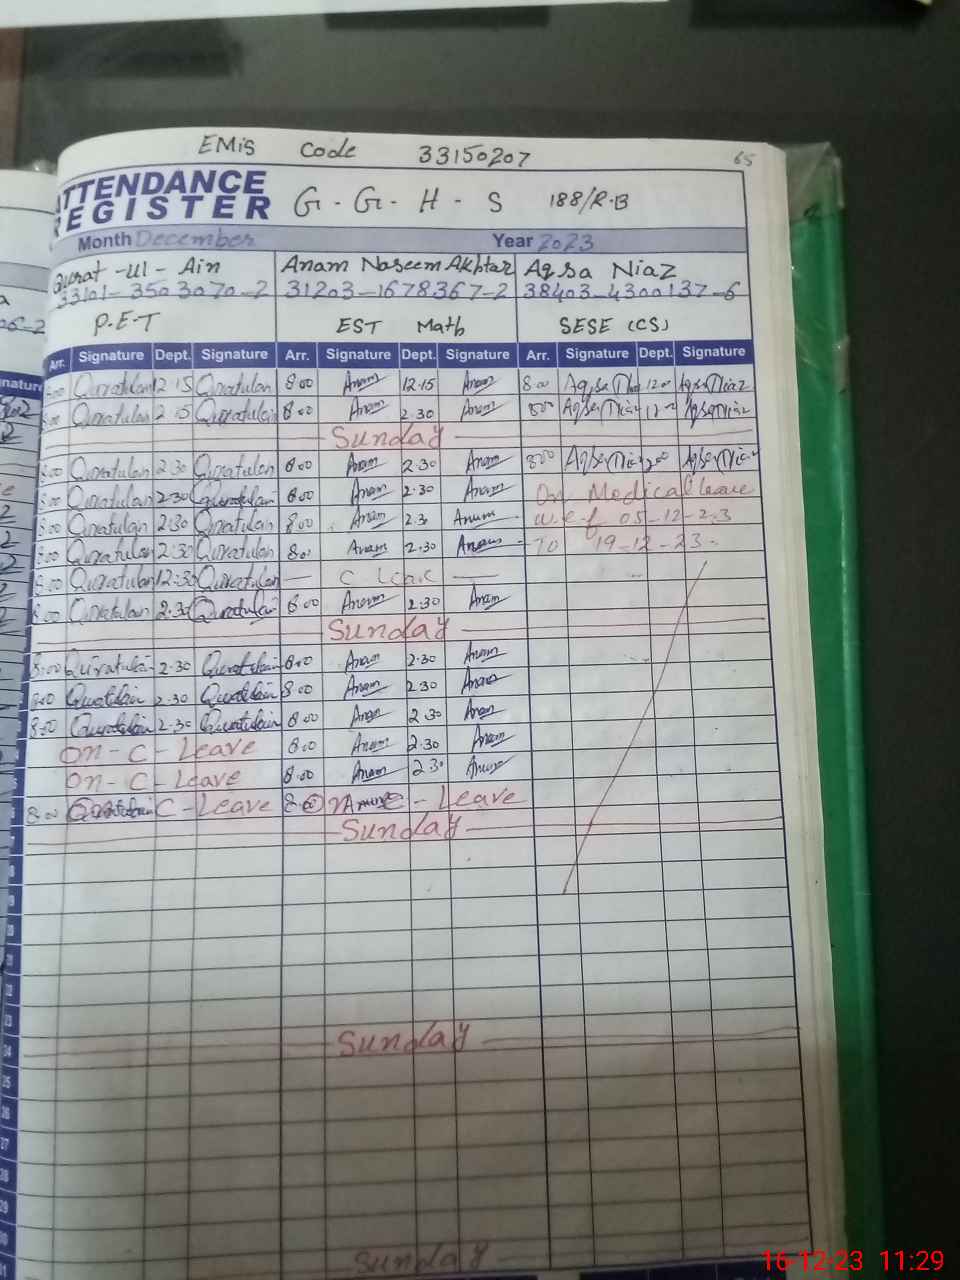 EMis Code 33150207 65
ATTENDANCE
REGISTER G-G-H-S 188/R.B
Month December Year 2023
Qurat-ul-Ain Anam Naseem Akhtar Aqsa Niaz
33101-3503070-2 31203-1678367-2 38403-4300137-6
P.E.T EST Math SESE (CS)
Arr. Signature Dept. Signature Arr. Signature Dept. Signature Arr. Signature Dept. Signature
8.00 Quratulain 12.15 Quratulain 8.00 Anam 12.15 Anam 8.00 Aqsa Niaz 12.00 Aqsa Niaz
8.00 Quratulain 2.15 Quratulain 8.00 Anam 2.30 Anam 8.00 Aqsa Niaz Aqsa Niaz
Sunday
8.00 Quratulain 2.30 Quratulain 8.00 Anam 2.30 Anam 8.00 Aqsa Niaz 2.00 Aqsa Niaz
8.00 Quratulain 2.30 Quratulain 8.00 Anam 2.30 Anam On Medical leave
8.00 Quratulain 2.30 Quratulain 8.00 Anam 2.3 Anam w.e.f 05-12-23
8.00 Quratulain 2.30 Quratulain 8.00 Anam 2.30 Anam To 19-12-23
8.00 Quratulain 12.30 Quratulain C
8.00 Quratulain 2.30 Quratulain 8.00 Anam 2.30 Anam
Sunday
8.00 Quratulain 2.30 Quratulain 8.00 Anam 2.30 Anam
8.00 Quratulain 2.30 Quratulain 8.00 Anam 2.30 Anam
8.00 Quratulain 2.30 Quratulain 8.00 Anam 2.30 Anam
On-C-Leave 8.00 Anam 2.30 Anam
On-C-Leave 8.00 Anam 2.30 Anam
8.00 Quratulain C-Leave 8.00 - Leave
Sunday
Sunday
25
26
27
28
29
30
Sunday
16-12-23 11:29